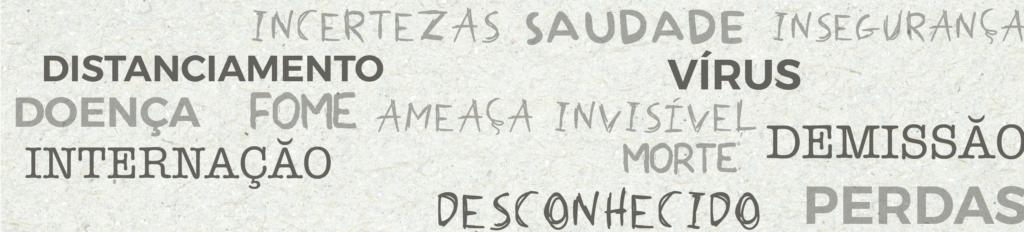 INCERTEZAS SAUDADE INSEGURANÇA
DISTANCIAMENTO VÍRUS
DOENÇA FOME AMEAÇA INVISÍVEL
DEMISSÃO
INTERNAÇÃO MORTE
DESCONHECIDO PERDAS